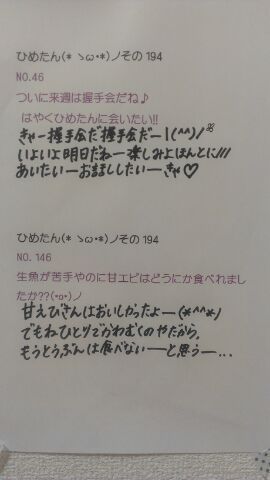 ひめたん(* ゝω・*)ノその194
NO.46
ついに来週は握手会だね♪
はやくひめたんに会いたい!!
きゃー握手会だ握手会だー!(^^)/
いよいよ明日だねー楽しみよほんとに///
あいたいーお話ししたいーきゃ♡
ひめたん(* ゝω・*)ノその194
NO. 146
生魚が苦手やのに甘エビはどうにか食べれまし
たか??(・o・)ノ
甘えびさんはおいしかったよー(*^^*)
でもねひとりでかわむくのやだから、
もうとうぶんは食べないーと思うー...